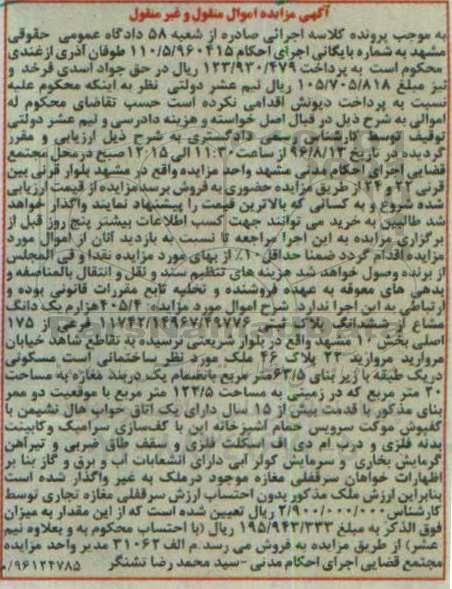 آگهی مزایده اموال منقول و غیر منقول
به موجب پرونده کلاسه اجرائی صادره از شعبه ۵۸ دادگاه عمومی حقوقی
مشهد به شماره بایگانی اجرای احکام ۱۱۰/۵/۹۶۰۴۱۵ طوفان آذری ازغندی
محکوم است به پرداخت ۱۲۳/۹۳۰/۴۷۹ ریال در حق جواد اسدی فرخد و
نیز مبلغ ۱۰۵/۷۰۵/۸۱۸ ریال نیم عشر دولتی نظر به اینکه محکوم علیه
نسبت به پرداخت دیونش اقدامی نکرده است حسب تقاضای محکوم له
اموالی به شرح ذیل در قبال اصل خواسته و هزینه دادرسی و نیم عشر دولتی
توقیف توسط کارشناس رسمی دادگستری به شرح ذیل ارزیابی و مقرر
گردیده در تاریخ ۹۶/۸/۱۳ از ساعت ۱۱:۳۰ الی ۱۲:۱۵ صبح درمحل مجتمع
قضایی اجرای احکام مدنی مشهد واحد مزایده واقع در مشهد بلوار قرنی بین
قرنی ۲۲ و ۲۴ از طریق مزایده حضوری به فروش برسد مزایده از قیمت ارزیابی
شده شروع و به کسانی که بالاترین قیمت را پیشنهاد نمایند واگذار خواهد
شد طالبین به خرید می توانند جهت کسب اطلاعات بیشتر پنج روز قبل از
برگزاری مزایده به این اجرا مراجعه تا نسبت به بازدید آنان از اموال مورد
مزایده اقدام گردد ضمنا حداقل ۱۰٪ از بهای مورد مزایده نقدا و فی المجلس
از برنده وصول خواهد شد هزینه های تنظیم سند و نقل و انتقال بالمناصفه و
بدهی های معوقه به عهده فروشنده و تخلیه تابع مقررات قانونی بوده و
ارتباطی به این اجرا ندارد. شرح اموال مورد مزایده: ۴۰۵/۴ هزارم یک دانگ
مشاع از ششدانگ پلاک ثبتی فرعی از ۱۷۵
اصلی بخش ۱۰ مشهد واقع در بلوار شریعتی نرسیده به تقاطع شاهد خیابان
مروارید مروارید ۲۳ پلاک ۴۶ ملک مورد نظر ساختمانی است مسکونی
دریک طبقه با زیر بنای ۶۳/۵ متر مربع بانضمام یک دربند مغازه به مساحت
۳۰ متر مربع که در زمینی به مساحت ۱۲۲/۵ متر مربع با موقعیت دو ممر
بنای مذکور با قدمت بیش از ۱۵ سال دارای یک اتاق خواب هال نشیمن با
کفپوش موکت سرویس حمام آشپزخانه اپن با کف‌سازی سرامیک وکابینت
بدنه فلزی و درب ام دی اف اسکلت فلزی و سقف طاق ضربی و تیرآهن
گرمایش بخاری و سرمایش کولر آبی دارای انشعابات آب و برق و گاز بنا بر
اظهارات خواهان سرقفلی مغازه موجود درملک به غیر واگذار شده است
بنابراین ارزش ملک مذکور بدون احتساب ارزش سرقفلی مغازه تجاری توسط
کارشناس ۲/۹۰۰/۰۰۰/۰۰۰ ریال تعیین شده است که از این مقدار به میزان
فوق الذکر به مبلغ ۱۹۵/۹۴۳/۳۳۳ ریال (با احتساب محکوم به و بعلاوه نیم
عشر) از طریق مزایده به فروش می رسد.م الف ۳۱۰۶۲ مدیر واحد مزایده
مجتمع قضایی اجرای احکام مدنی -سید محمد رضا تشنگر /۹۶۱۲۴۷۸۵م